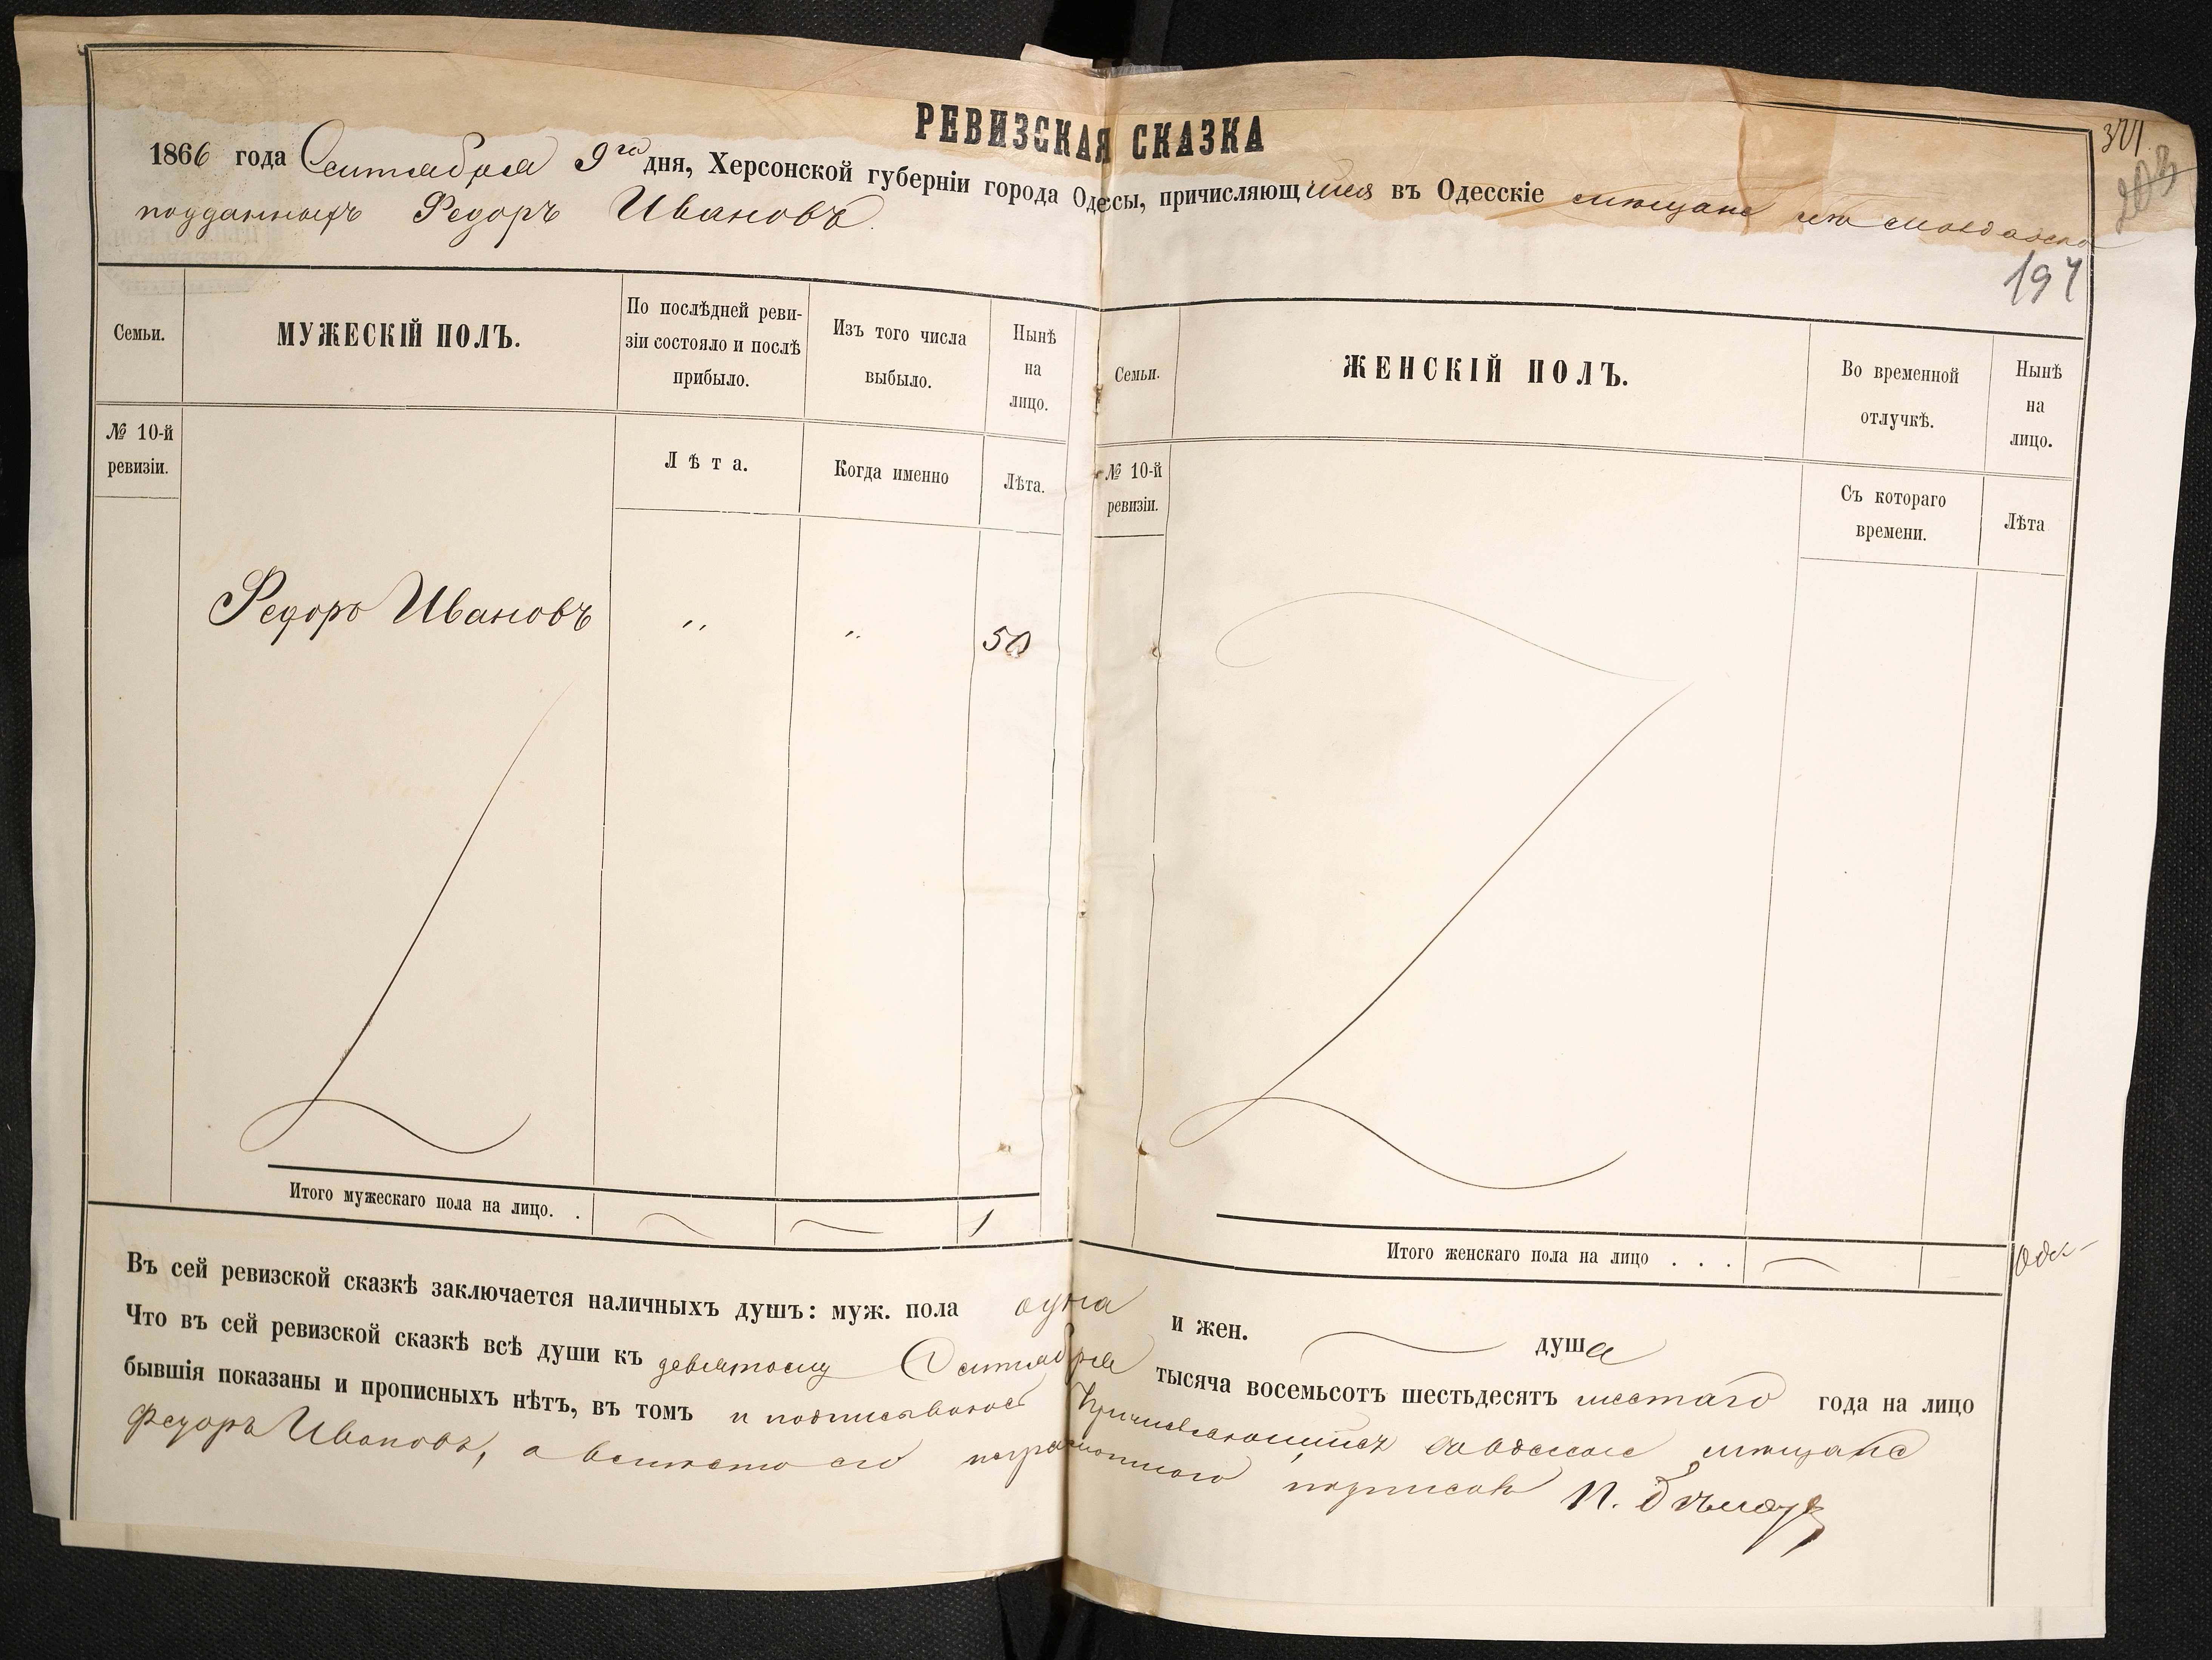 РЕВИЗСКАЯ СКАЗКА
1866 года Сентября 9го дня, Херсонской губерніи города Одессы, причисляющійся въ Одесскіе мѣщане изъ молдавско
подданныхъ Федоръ Ивановъ.
301
203
197
Семьи.
МУЖЕСКІЙ ПОЛЪ.
По послѣдней реви-
зіи состояло и послѣ
прибыло.
Изъ того числа
выбыло.
Нынѣ
на
лицо.
№ 10-й
ревизіи.
Лѣта.
Когда именно
Лѣта.
Федоръ Ивановъ " " 50
Итого мужескаго пола на лицо. . 1
Семьи.
ЖЕНСКІЙ ПОЛЪ.
Во временной
отлучкѣ.
Нынѣ
на
лицо.
№ 10-й
ревизіи.
Съ котораго
времени.
Лѣта
Итого женскаго пола на лицо . . .
Въ сей ревизской сказкѣ заключается наличныхъ душъ: муж. пола одна и жен. душа
Что въ сей ревизской сказкѣ всѣ души къ девятому Сентября тысяча восемьсотъ шестьдесятъ шестаго года на лицо
бывшія показаны и прописныхъ нѣтъ, въ томъ и подписываюсь Причисляющійся въ Одесскіе мѣщане
Федоръ Ивановъ, а вмѣсто его неграмотнаго подписалъ П.